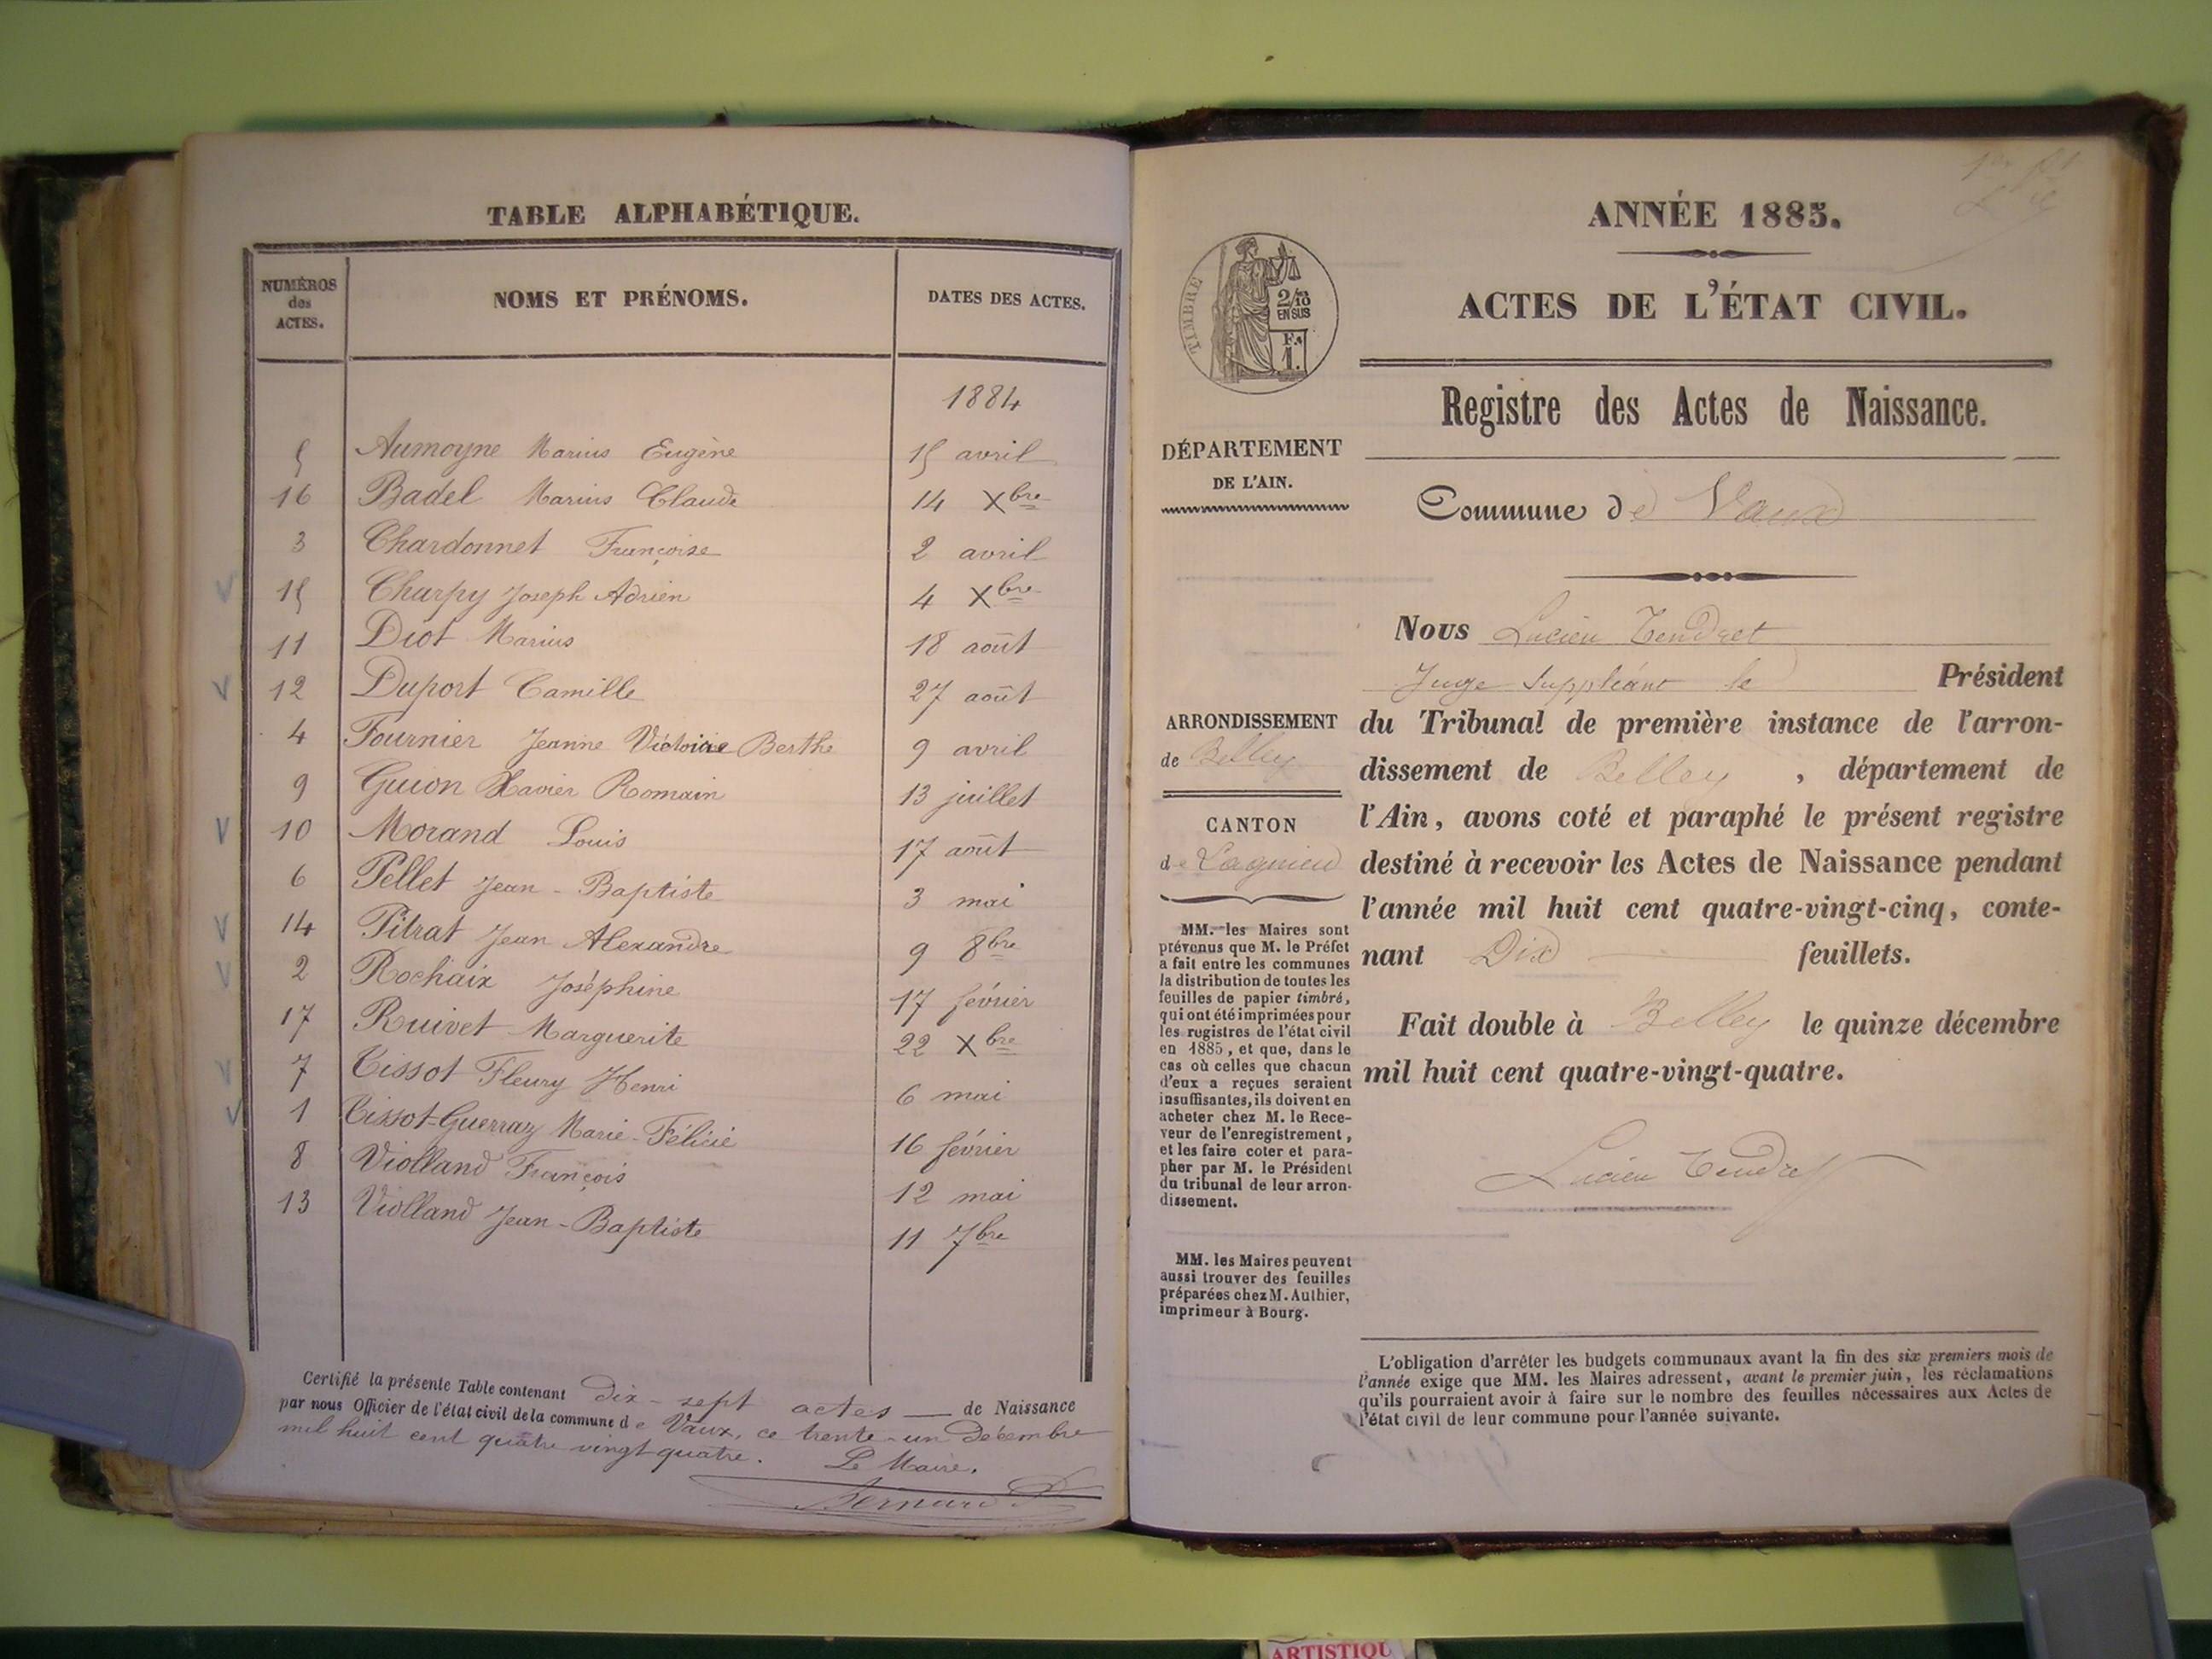 TABLE ALPHABÉTIQUE.
NUMÉROS des ACTES. NOMS ET PRÉNOMS. DATES DES ACTES.
1884
5 Aumoyne Marius Eugène 15 avril
16 Badel Marius Claude 14 Xbre
3 Chardonnet Françoise 2 avril
15 Charpy Joseph Adrien 4 Xbre
11 Diot Marius 18 août
12 Duport Camille 27 août
4 Fournier Jeanne Victoire Berthe 9 avril
9 Guion Xavier Romain 13 juillet
10 Morand Louis 17 août
6 Pellet Jean-Baptiste 3 mai
14 Pitrat Jean Alexandre 9 8bre
2 Rochaix Joséphine 17 février
17 Ruivet Marguerite 22 Xbre
7 Tissot Fleury Henri 6 mai
1 Tissot-Guerraz Marie-Félicie 16 février
8 Violland François 12 mai
13 Violland Jean-Baptiste 11 7bre
Certifié la présente Table contenant dix-sept actes — de Naissance
par nous Officier de l'état civil de la commune de Vaux, ce trente-un Décembre
mil huit cent quatre vingt quatre. Le Maire,
Bernard
ANNÉE 1885.
ACTES DE L'ÉTAT CIVIL.
TIMBRE
2/10
EN SUS
F.
1.
Registre des Actes de Naissance.
DÉPARTEMENT
DE L'AIN.
Commune de Vaux
Nous Lucien Tendret
Juge Suppléant le Président
du Tribunal de première instance de l'arron-
dissement de Belley, département de
l'Ain, avons coté et paraphé le présent registre
destiné à recevoir les Actes de Naissance pendant
l'année mil huit cent quatre-vingt-cinq, conte-
nant Dix feuillets.
Fait double à Belley le quinze décembre
mil huit cent quatre-vingt-quatre.
Lucien Tendret
ARRONDISSEMENT
de Belley
CANTON
de Lagnieu
MM. les Maires sont
prévenus que M. le Préfet
a fait entre les communes
la distribution de toutes les
feuilles de papier timbré,
qui ont été imprimées pour
les registres de l'état civil
en 1885, et que, dans le
cas où celles que chacun
d'eux a reçues seraient
insuffisantes, ils doivent en
acheter chez M. le Rece-
veur de l'enregistrement,
et les faire coter et para-
pher par M. le Président
du tribunal de leur arron-
dissement.
MM. les Maires peuvent
aussi trouver des feuilles
préparées chez M. Authier,
imprimeur à Bourg.
L'obligation d'arrêter les budgets communaux avant la fin des six premiers mois de
l'année exige que MM. les Maires adressent, avant le premier juin, les réclamations
qu'ils pourraient avoir à faire sur le nombre des feuilles nécessaires aux Actes de
l'état civil de leur commune pour l'année suivante.
ARTISTIQU